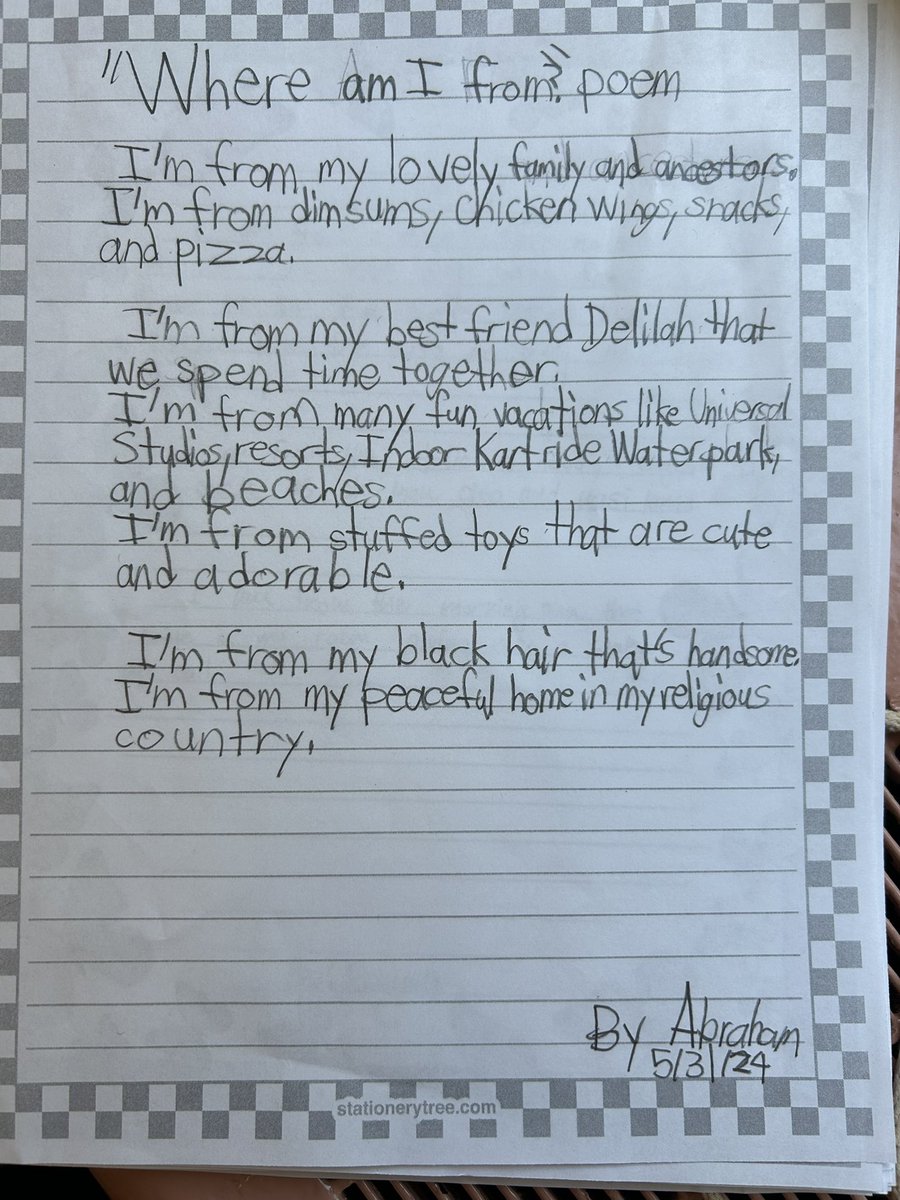 "Where am I from?" poem
I'm from my lovely family and ancestors.
I'm from dimsums, chicken wings, snacks,
and pizza.
I'm from my best friend Delilah that
we spend time together.
I'm from many fun vacations like Universal
Studios, resorts, Indoor Kartride Waterpark,
and beaches.
I'm from stuffed toys that are cute
and adorable.
I'm from my black hair that's handsome.
I'm from my peaceful home in my religious
country.
By Abraham
5/31/24
stationerytree.com